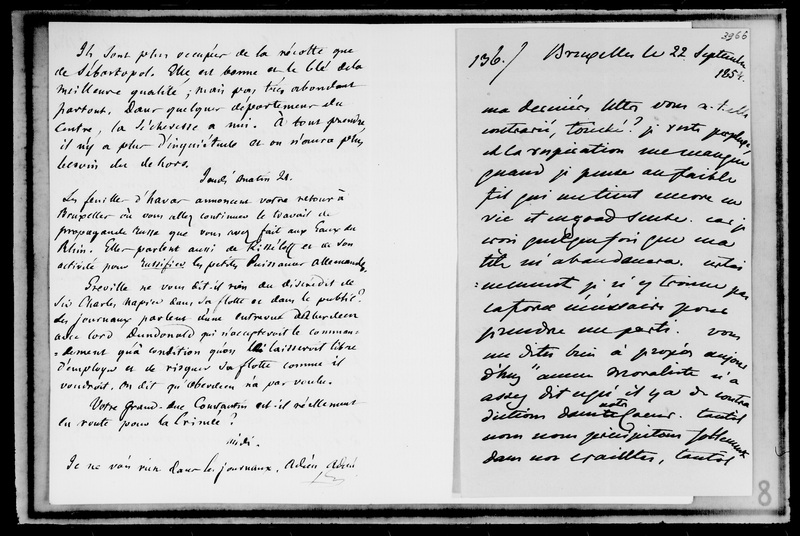 Ils sont plus occupés de la récolte que
de Sébastopol. Elle est bonne et le blé de la
meilleure qualité ; mais pas très abondant
partout. Dans quelques départemens du
Centre, la sécheresse a nui. À tout prendre
il n'y a plus d'inquiétude et on n'aura plus
besoin du dehors.
Jeudi matin 21.
Les feuilles d'havas annoncent votre retour à
Bruxelles où vous allez continuer le travail de
propagande russe que vous avez fait aux Eaux du
Rhin. Elles parlent aussi de Kisseleff et de son
activité pour russifier les petites Puissances allemandes.
Greville ne vous dit-il rien du discrédit de
Sir Charles Napier dans sa flotte et dans le public ?
Les journaux parlent d'une entrevue d'Aberdeen
avec lord Dundonald qui n'accepteroit le comman-
-dement qu'à condition qu'on lui laisseroit libre
d'employer et de risquer sa flotte comme il
voudroit. On dit qu'aberdeen n'a pas voulu.
Votre grand-duc Constantin est-il réellement
en route pour la Crimée ?
midi.
Je ne vois rien dans les journaux. Adieu, Adieu
3966
136./ Bruxelles le 22 Septembre
1854.
ma dernière lettre vous a-t-elle
contrarié, touché ? je reste perplexe,
et la respiration me manque
quand je pense au faible
fil qui me tient encore en
vie et in good sense. car je
crois quelquefois que ma
tête m'abandonnera.
je n'y trouve pas
la force nécessaire pour
prendre un parti. vous
me dites bien à propos aujour
d'huy "aucun moraliste n'a
assez dit ce qu'il y a de contra
dictions dans notre coeur. tantôt
nous nous précipitons follement
dans nos craintes, tantôt
8